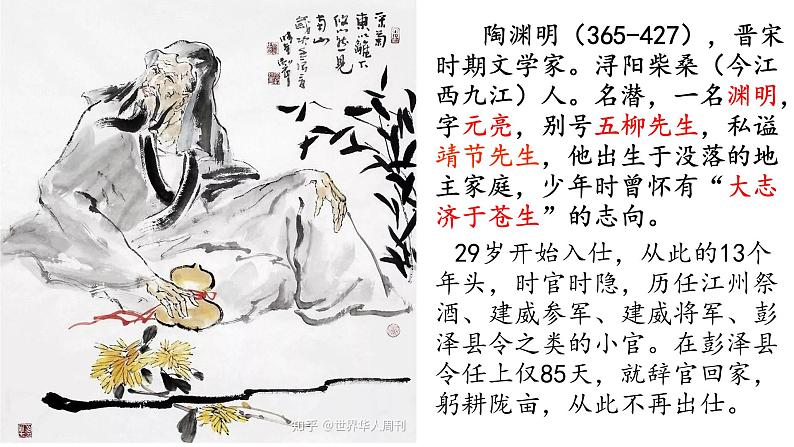 采菊
东篱下
悠然见
南山
陶渊明（365-427），晋宋
时期文学家。浔阳柴桑（今江
西九江）人。名潜，一名渊明，
字元亮，别号五柳先生，私谥
靖节先生，他出生于没落的地
主家庭，少年时曾怀有“大志
济于苍生”的志向。
29岁开始入仕，从此的13个
年头，时官时隐，历任江州祭
酒、建威参军、建威将军、彭
泽县令之类的小官。在彭泽县
令任上仅85天，就辞官回家，
躬耕陇亩，从此不再出仕。
知乎 @世界华人周刊